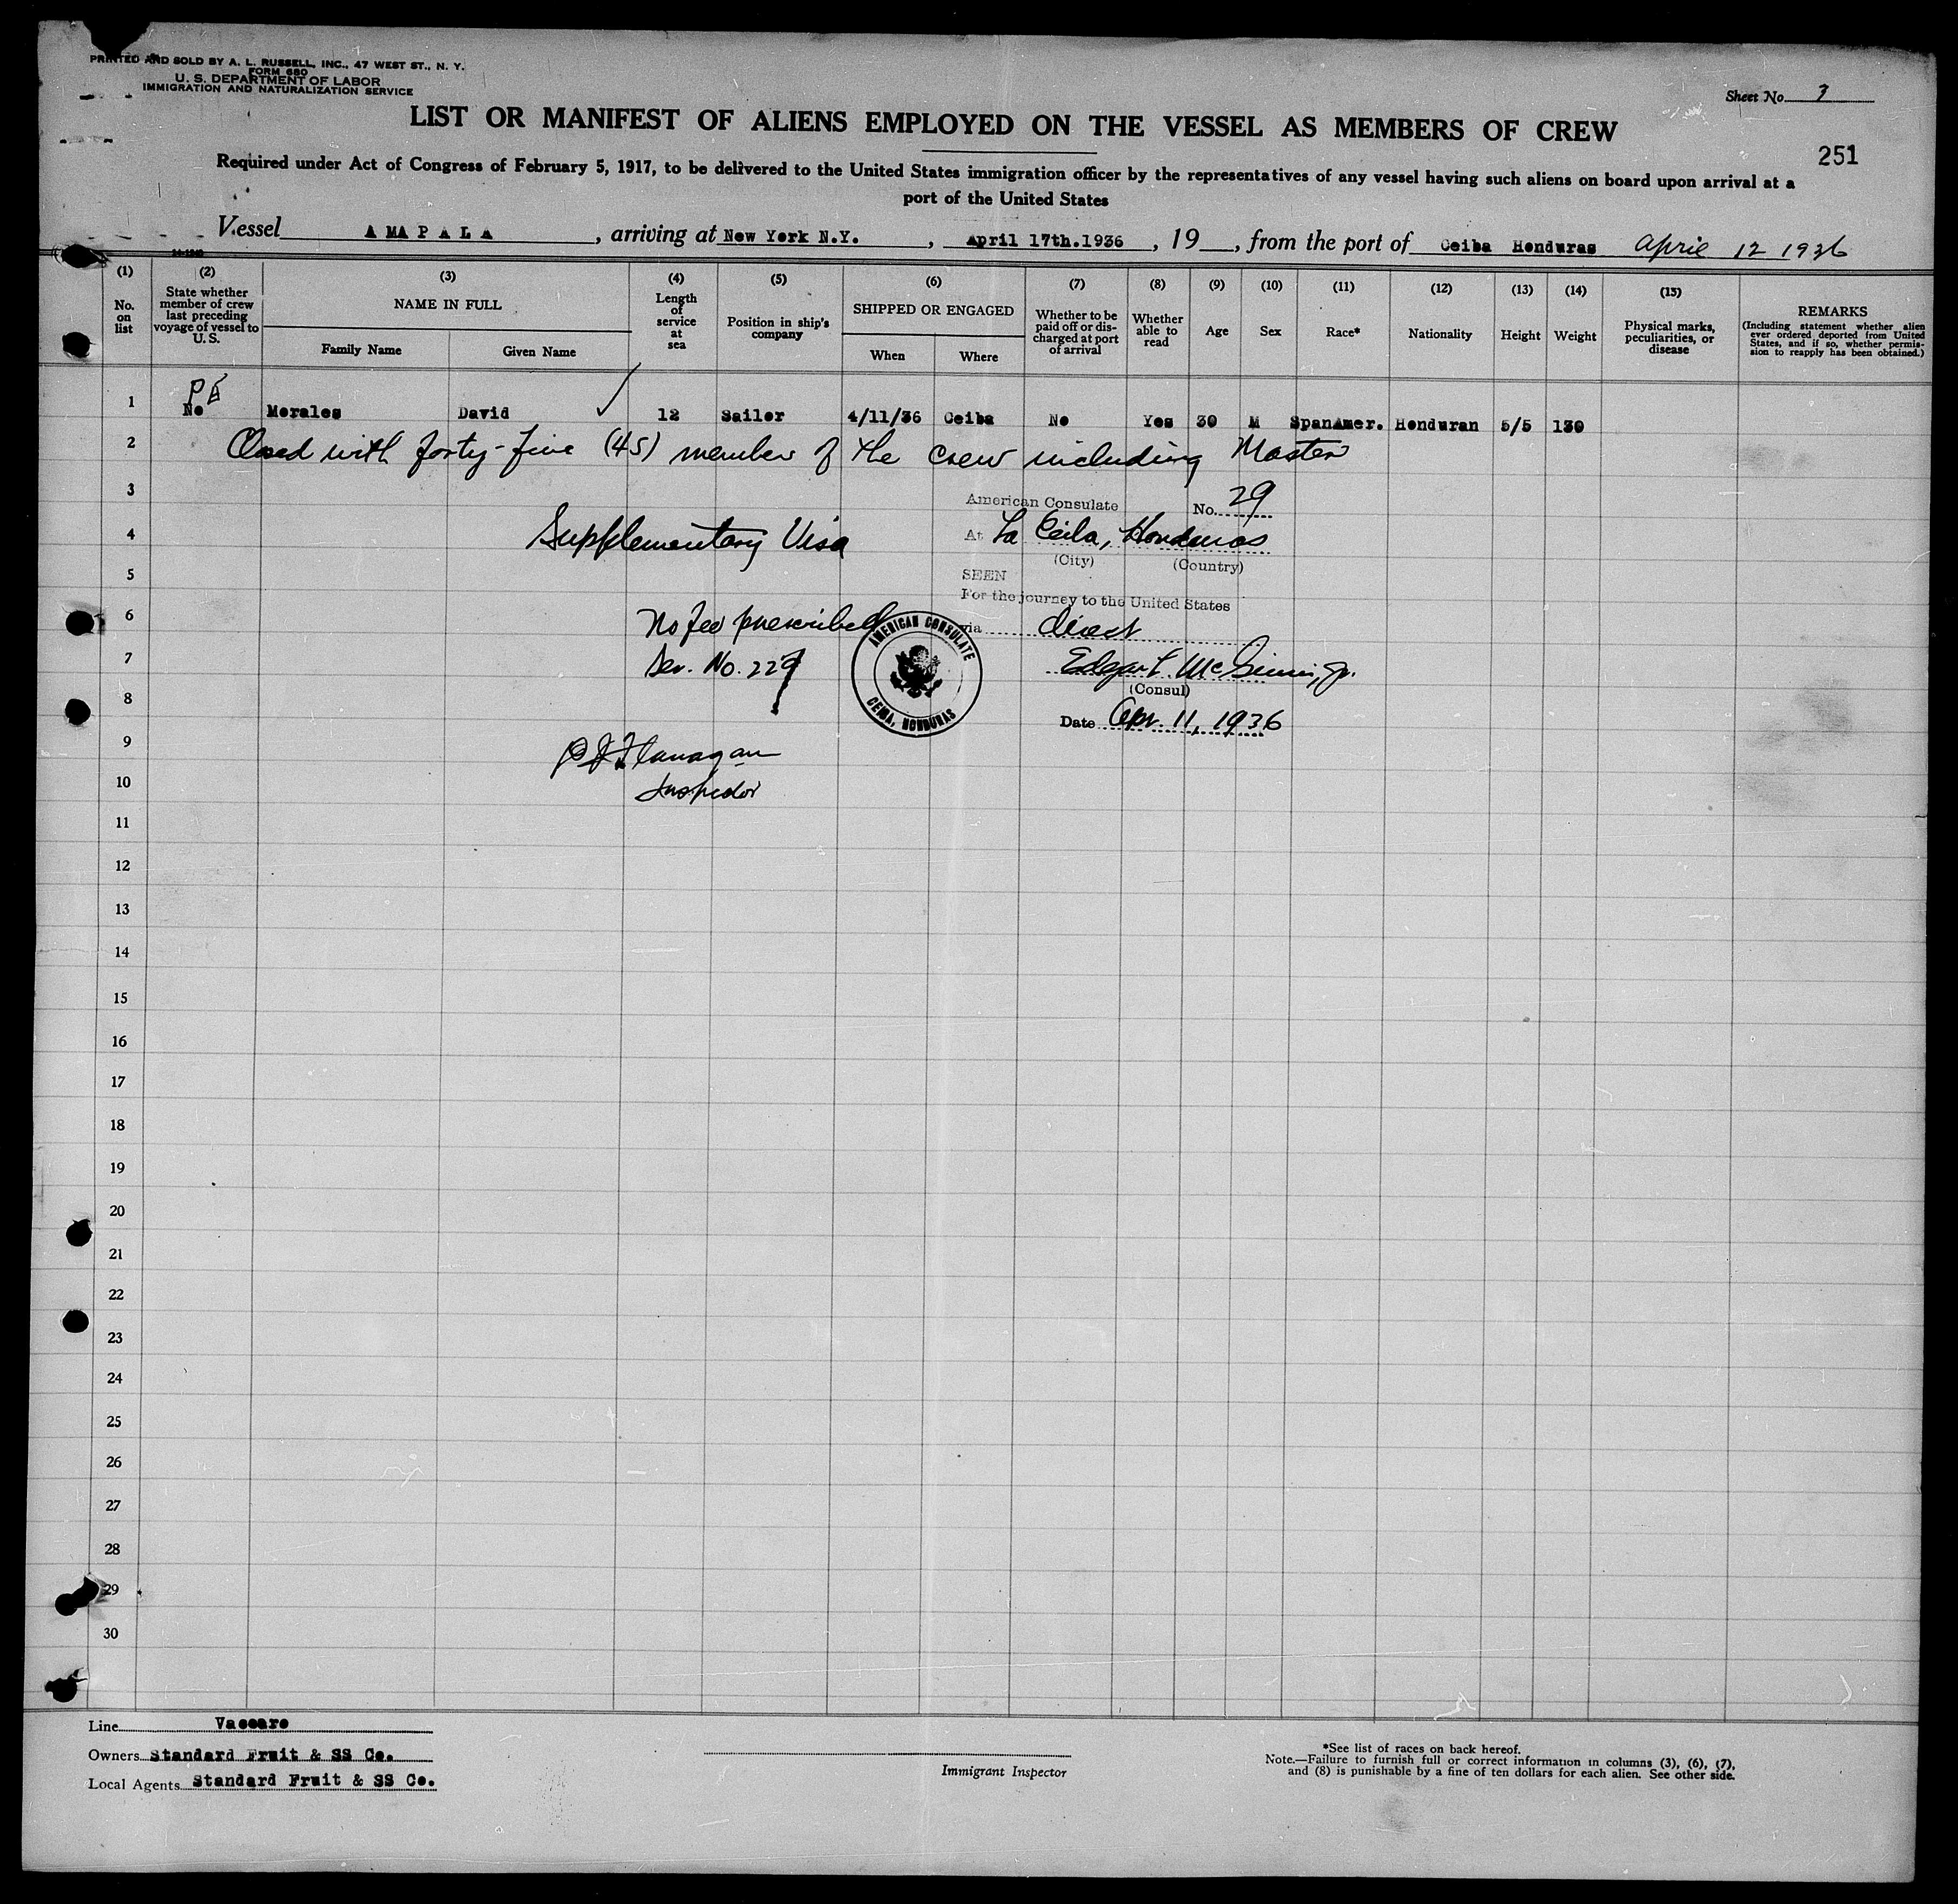 PRINTED AND SOLD BY A. L. RUSSELL, INC., 47 WEST ST., N. Y.
FORM 680
U. S. DEPARTMENT OF LABOR
IMMIGRATION AND NATURALIZATION SERVICE
Sheet No. 3
LIST OR MANIFEST OF ALIENS EMPLOYED ON THE VESSEL AS MEMBERS OF CREW
251
Required under Act of Congress of February 5, 1917, to be delivered to the United States immigration officer by the representatives of any vessel having such aliens on board upon arrival at a
port of the United States
Vessel AMAPALA, arriving at New York N.Y., April 17th.1936, 19__, from the port of Ceiba Honduras April 12 1936
(1) (2) (3) (4) (5) (6) (7) (8) (9) (10) (11) (12) (13) (14) (15)
No. on list
State whether member of crew last preceding voyage of vessel to U. S.
NAME IN FULL
Family Name
Given Name
Length of service at sea
Position in ship's company
SHIPPED OR ENGAGED
When
Where
Whether to be paid off or discharged at port of arrival
Whether able to read
Age
Sex
Race*
Nationality
Height
Weight
Physical marks, peculiarities, or disease
REMARKS
(Including statement whether alien ever ordered deported from United States, and if so, whether permission to reapply has been obtained.)
1 No Morales David 12 Sailor 4/11/36 Ceiba No Yes 30 M SpanAmer. Honduran 5/5 130
2 Closed with forty-five (45) member of the crew including Master
3 American Consulate No. 29
4 Supplementary Visa At La Ceiba, Honduras
(City) (Country)
5 SEEN
For the journey to the United States
6 No fee prescribed via direct
AMERICAN CONSULATE
CEIBA, HONDURAS
7 Ser. No. 229 Edgar L. McGinnis, Jr.
(Consul)
8 Date Apr. 11, 1936
9 P J Flanagan
10 Inspector
11
12
13
14
15
16
17
18
19
20
21
22
23
24
25
26
27
28
29
30
Line Vaccaro
Owners Standard Fruit & SS Co.
Local Agents Standard Fruit & SS Co.
Immigrant Inspector
*See list of races on back hereof.
Note.—Failure to furnish full or correct information in columns (3), (6), (7),
and (8) is punishable by a fine of ten dollars for each alien. See other side.